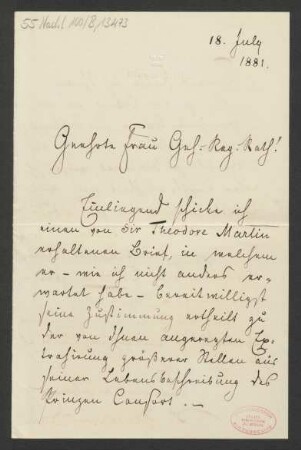 55 Nachl 100/B,13473
18. July
1881.
Geehrte Frau Geh: Reg: Rath!
Einliegend schicke ich
einen von Sir Theodore Martin
erhaltenen Brief, in welchem
er – wie ich nicht anders er-
wartet habe – bereitwilligst
seine Zustimmung ertheilt zu
der von Ihnen angeregten Ex-
trahirung größerer Stellen aus
seiner Lebensbeschreibung des
Prinzen Consort. –